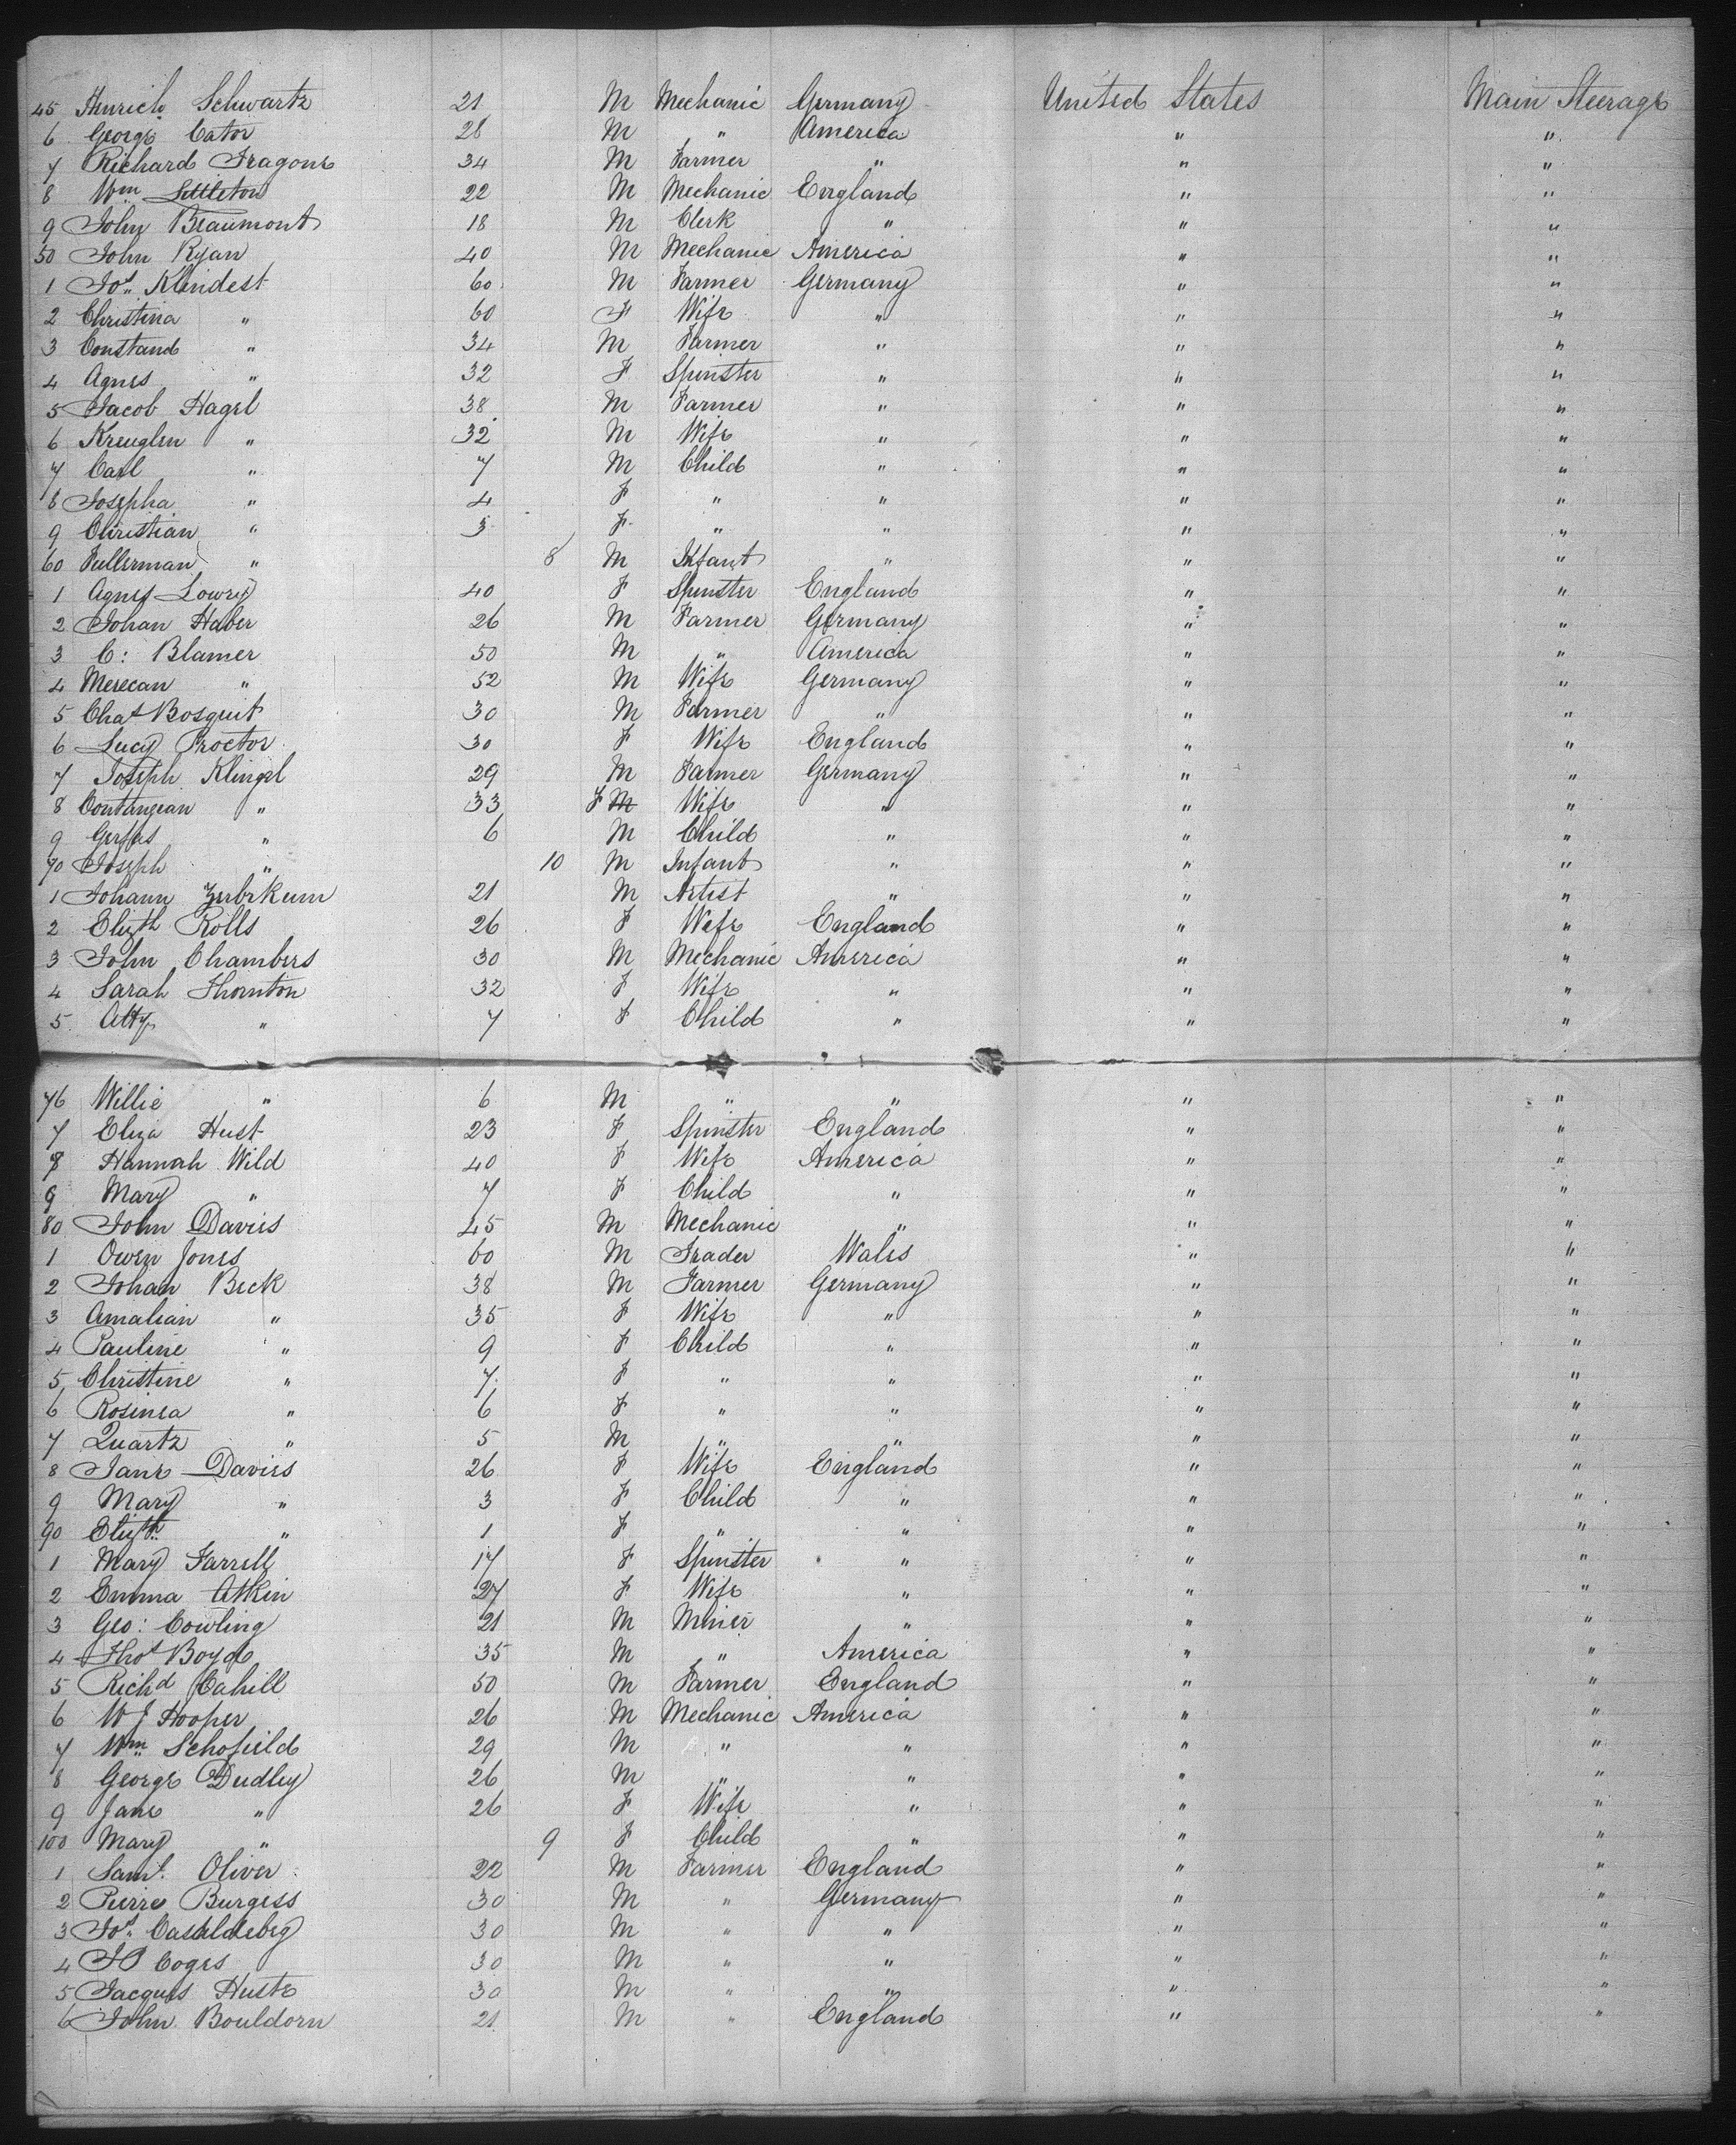 45 Henrich Schwartz 21 M Mechanic Germany United States Main Steerage
6 George Cator 28 M " America " "
7 Richard Fragone 34 M Farmer " " "
8 Wm Littleton 22 M Mechanic England " "
9 John Beaumont 18 M Clerk " " "
50 John Ryan 40 M Mechanic America " "
1 Jos. Klindest 60 M Farmer Germany " "
2 Christina " 60 F Wife " " "
3 Constand " 34 M Farmer " " "
4 Agnes " 32 F Spinster " " "
5 Jacob Hagel 38 M Farmer " " "
6 Kreuglen " 32 M Wife " " "
7 Carl " 7 M Child " " "
8 Josepha " 4 F " " " "
9 Christian " 3 F " " " "
60 Fullerman " 8 M Infant " " "
1 Agnes Lowry 40 F Spinster England " "
2 Johan Haber 26 M Farmer Germany " "
3 C: Blamer 50 M " America " "
4 Merecan " 52 M Wife Germany " "
5 Chas Bosquit 30 M Farmer " " "
6 Lucy Proctor 30 F Wife England " "
7 Joseph Klingel 29 M Farmer Germany " "
8 Contangean " 33 F M Wife " " "
9 " 6 M Child " " "
70 Joseph " 10 M Infant " " "
1 Johann 21 M Artist " " "
2 Elizth Rolls 26 F Wife England " "
3 John Chambers 30 M Mechanic America " "
4 Sarah Thornton 32 F Wife " " "
5 " 7 F Child " " "
76 Willie " 6 M " " " "
7 Eliza Hust 23 F Spinster England " "
8 Hannah Wild 40 F Wife America " "
9 Mary " 7 F Child " " "
80 John Davies 45 M Mechanic " " "
1 Owen Jones 60 M Trader Wales " "
2 Johan Beck 38 M Farmer Germany " "
3 Amalian " 35 F Wife " " "
4 Pauline " 9 F Child " " "
5 Christine " 7 F " " " "
6 Rosinea " 6 F " " " "
7 Quartz " 5 M " " " "
8 Jane Davies 26 F Wife England " "
9 Mary " 3 F Child " " "
90 Elizth " 1 F " " " "
1 Mary Farrell 17 F Spinster " " "
2 Emma Atkin 27 F Wife " " "
3 Geo: Cowling 21 M Miner " " "
4 Thos Boyd 35 M " America " "
5 Richd Cahill 50 M Farmer England " "
6 W J Hooper 26 M Mechanic America " "
7 Wm Schofield 29 M " " " "
8 George Dudley 26 M " " " "
9 Jane " 26 F Wife " " "
100 Mary " 9 F Child " " "
1 Saml. Oliver 22 M Farmer England " "
2 Pierre Burgess 30 M " Germany " "
3 Jos. 30 M " " " "
4 Coges 30 M " " " "
5 Jacques Huste 30 M " " " "
6 John Bouldorn 21 M " England " "